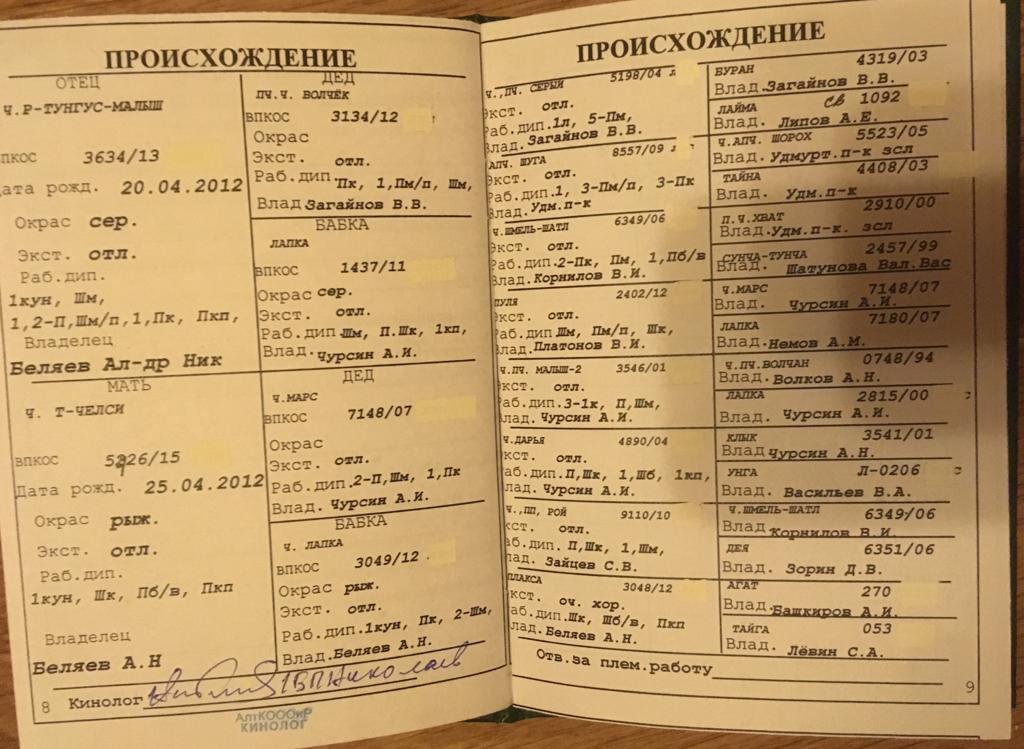 ПРОИСХОЖДЕНИЕ
ОТЕЦ
Ч.Р-ТУНГУС-МАЛЫШ
ВПКОС 3634/13
Дата рожд. 20.04.2012
Окрас сер.
Экст. отл.
Раб.дип.
1кун, Шм,
1,2-П,Шм/п,1,Пк, Пкп,
Владелец
Беляев Ал-др Ник
МАТЬ
Ч. Т-ЧЕЛСИ
ВПКОС
Дата рожд. 25.04.2012
Окрас рыж.
Экст. отл.
Раб.дип.
1кун, Шк, Пб/в, Пкп
Владелец
Беляев А.Н
ДЕД
ПЧ.Ч. ВОЛЧЁК
ВПКОС 3134/12
Окрас
Экст. отл.
Раб.дип. Пк, 1,Пм/п, Шм,
Влад. Загайнов В.В.
БАБКА
ЛАПКА
ВПКОС 1437/11
Окрас сер.
Экст. отл.
Раб.дип. Шм, П.Шк, 1кп,
Влад. Чурсин А.И.
ДЕД
Ч.МАРС
ВПКОС 7148/07
Окрас
Экст. отл.
Раб.дип. 2-П,Шм, 1,Пк
Влад. Чурсин А.И.
БАБКА
Ч. ЛАПКА
ВПКОС 3049/12
Окрас рыж.
Экст. отл.
Раб.дип. 1кун, Пк, 2-Шм,
Влад. Беляев А.Н.
8 Кинолог
АлтКОООиР
КИНОЛОГ
ПРОИСХОЖДЕНИЕ
Ч.,ПЧ. СЕРЫЙ 5198/04
Экст. отл.
Раб.дип. 1л, 5-Пм,
Влад. Загайнов В.В.
АПЧ. ШУГА 8557/09
Экст. отл.
Раб.дип. 1, 3-Пм/п, 3-Пк
Влад. Удм.п-к
Ч.ШМЕЛЬ-ШАТЛ 6349/06
Экст. отл.
Раб.дип. 2-Пк, Пм, 1,Пб/в
Влад. Корнилов В.И.
ПУЛЯ 2402/12
Экст. отл.
Раб.дип Шм, Пм/п, Шк,
Влад. Платонов В.И.
Ч.ПЧ. МАЛЫШ-2 3546/01
Экст. отл.
Раб.дип. 3-1к, П,Шм,
Влад. Чурсин А.И.
Ч.ДАРЬЯ 4890/04
Экст. отл.
Раб.дип. П,Шк, 1,Шб, 1кп,
Влад. Чурсин А.И.
Ч.,ПП, РОЙ 9110/10
кст. отл.
аб.дип. П,Шк, 1,Шм,
лад. Зайцев С.В.
ПЛАКСА 3048/12
кст. оч. хор.
аб.дип. Шк, Шб/в, Пкп
Влад. Беляев А.Н.
БУРАН 4319/03
Влад. Загайнов В.В.
ЛАЙМА св 1092
Влад. Липов А.Е.
Ч.АПЧ. ШОРОХ 5523/05
Влад. Удмурт.п-к зсл
ТАЙНА 4408/03
Влад. Удм.п-к
П.Ч.ХВАТ 2910/00
Влад. Удм.п-к. зсл
СУНЧА-ТУНЧА 2457/99
Влад. Шатунова Вал.Вас
Ч.МАРС 7148/07
Влад. Чурсин А.И.
ЛАПКА 7180/07
Влад. Немов А.М.
Ч.ПЧ.ВОЛЧАН 0748/94
Влад. Волков А.Н.
ЛАПКА 2815/00
Влад. Чурсин А.И.
КЛЫК 3541/01
Влад Чурсин А.Н.
УНГА Л-0206
Влад. Васильев В.А.
Ч.ШМЕЛЬ-ШАТЛ 6349/06
Влад Корнилов В.И.
ДЕЯ 6351/06
Влад. Зорин Д.В.
АГАТ 270
Влад. Башкиров А.И.
ТАЙГА 053
Влад. Лёвин С.А.
Отв.за плем.работу
9